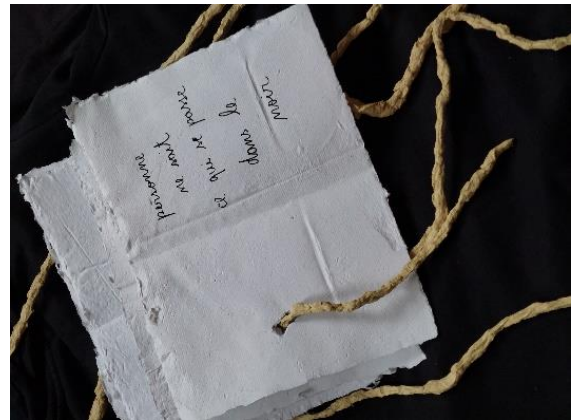 personne
ne voit
ce qui se passe
dans le
noir.